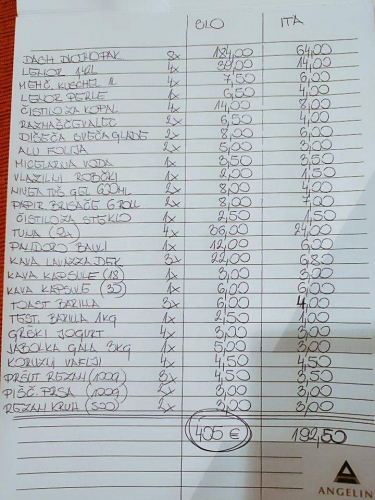 SLO ITA
DASH DVOJNOPAK 8x 184,00 64,00
LENOR 1,42L 4x 38,00 14,00
MEHČ. KUSCHEL 1L 4x 7,50 6,00
LENOR PERLE 1x 6,50 4,00
ČISTILO ZA KOPAL 4x 14,00 8,00
RAZMAŠČEVALEC 2x 6,50 4,00
DIŠEČA SVEČA GLADE 2x 8,00 6,00
ALU FOLIJA 2x 5,00 3,00
MICELARNA VODA 1x 3,50 3,50
VLAŽILNI ROBČKI 1x 2,00 1,50
NIVEA TUŠ GEL 600ML 2x 8,00 4,00
PAPIR BRISAČE 6 ROLL 2x 8,00 7,00
ČISTILO ZA STEKLO 1x 2,50 1,50
TUNA 4x 36,00 24,00
PALIDORO BAULI 1x 12,00 6,00
KAVA LAVAZZA DEK 3x 22,00 6,80
KAVA KAPSULE (18) 1x 3,00 3,00
KAVA KAPSULE (30) 1x 6,00 6,00
TOAST BARILLA 3x 6,00 4,00
TEST. BARILLA 1KG 1x 2,50 1,00
GRŠKI JOGURT 4x 3,00 3,00
JABOLKA GALA 3KG 1x 5,00 3,00
KORUZNI VAFLJI 4x 4,50 4,50
PRŠUT REZAN (100g) 3x 4,50 3,50
PIŠČ. PRSA (100g) 2x 3,00 3,00
REZAN KRUH (500) 2x 3,00 3,00
405 € 192,50
ANGELIN